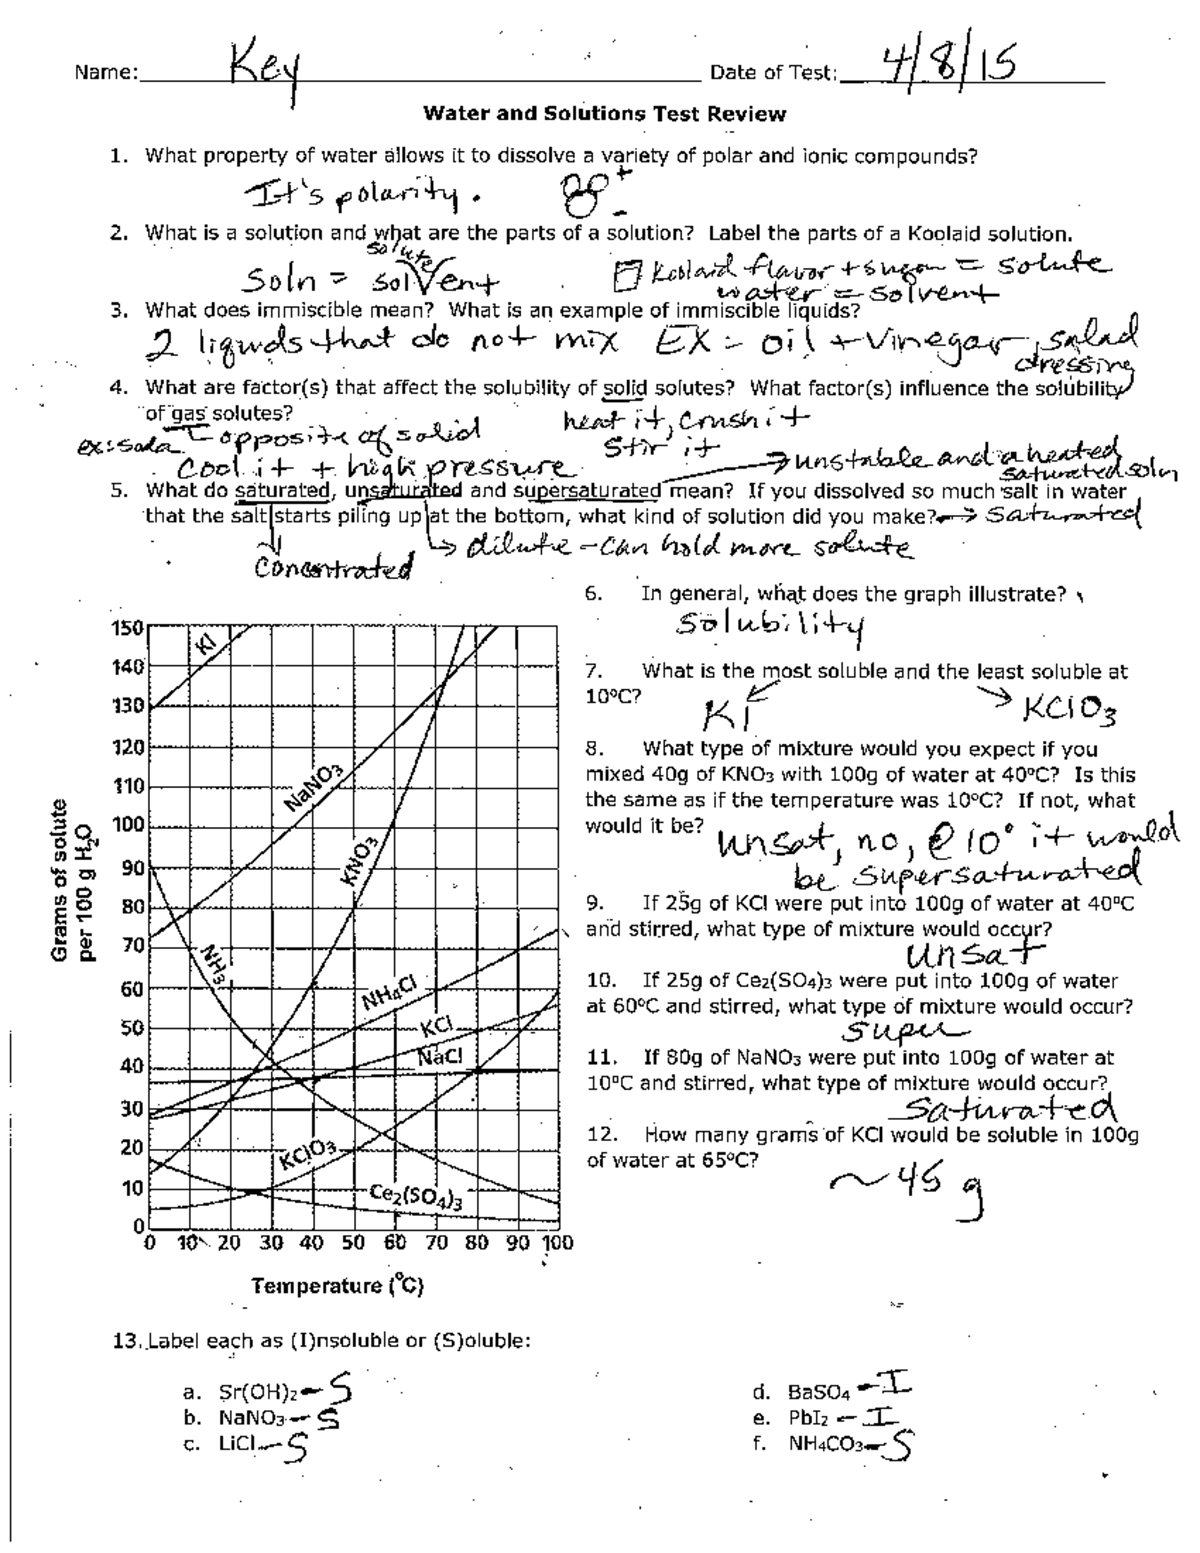 Name: Key Date of Test: 4/8/15
Water and Solutions Test Review
1. What property of water allows it to dissolve a variety of polar and ionic compounds?
It's polarity. + -
2. What is a solution and what are the parts of a solution? Label the parts of a Koolaid solution.
solute
soln = solvent
Koolaid flavor + sugar = solute
water = solvent
3. What does immiscible mean? What is an example of immiscible liquids?
2 liquids that do not mix EX = oil + vinegar, salad
dressing
4. What are factor(s) that affect the solubility of solid solutes? What factor(s) influence the solubility
of gas solutes?
heat it, crush it
stir it
ex: soda opposite of solid
cool it + high pressure
unstable and a heated
saturated soln
5. What do saturated, unsaturated and supersaturated mean? If you dissolved so much salt in water
that the salt starts piling up at the bottom, what kind of solution did you make? saturated
dilute - can hold more solute
concentrated
6. In general, what does the graph illustrate?
solubility
7. What is the most soluble and the least soluble at
10ºC?
KI KClO3
8. What type of mixture would you expect if you
mixed 40g of KNO3 with 100g of water at 40ºC? Is this
the same as if the temperature was 10ºC? If not, what
would it be?
unsat, no, @ 10° it would
be supersaturated
9. If 25g of KCl were put into 100g of water at 40ºC
and stirred, what type of mixture would occur?
unsat
10. If 25g of Ce2(SO4)3 were put into 100g of water
at 60ºC and stirred, what type of mixture would occur?
super
11. If 80g of NaNO3 were put into 100g of water at
10ºC and stirred, what type of mixture would occur?
saturated
12. How many grams of KCl would be soluble in 100g
of water at 65ºC?
~45 g
Grams of solute
per 100 g H2O
150
140
130
120
110
100
90
80
70
60
50
40
30
20
10
0
KI
NaNO3
KNO3
NH3
NH4Cl
KCl
NaCl
KClO3
Ce2(SO4)3
0 10 20 30 40 50 60 70 80 90 100
Temperature (°C)
13. Label each as (I)nsoluble or (S)oluble:
a. Sr(OH)2 - S
b. NaNO3 - S
c. LiCl - S
d. BaSO4 - I
e. PbI2 - I
f. NH4CO3 - S